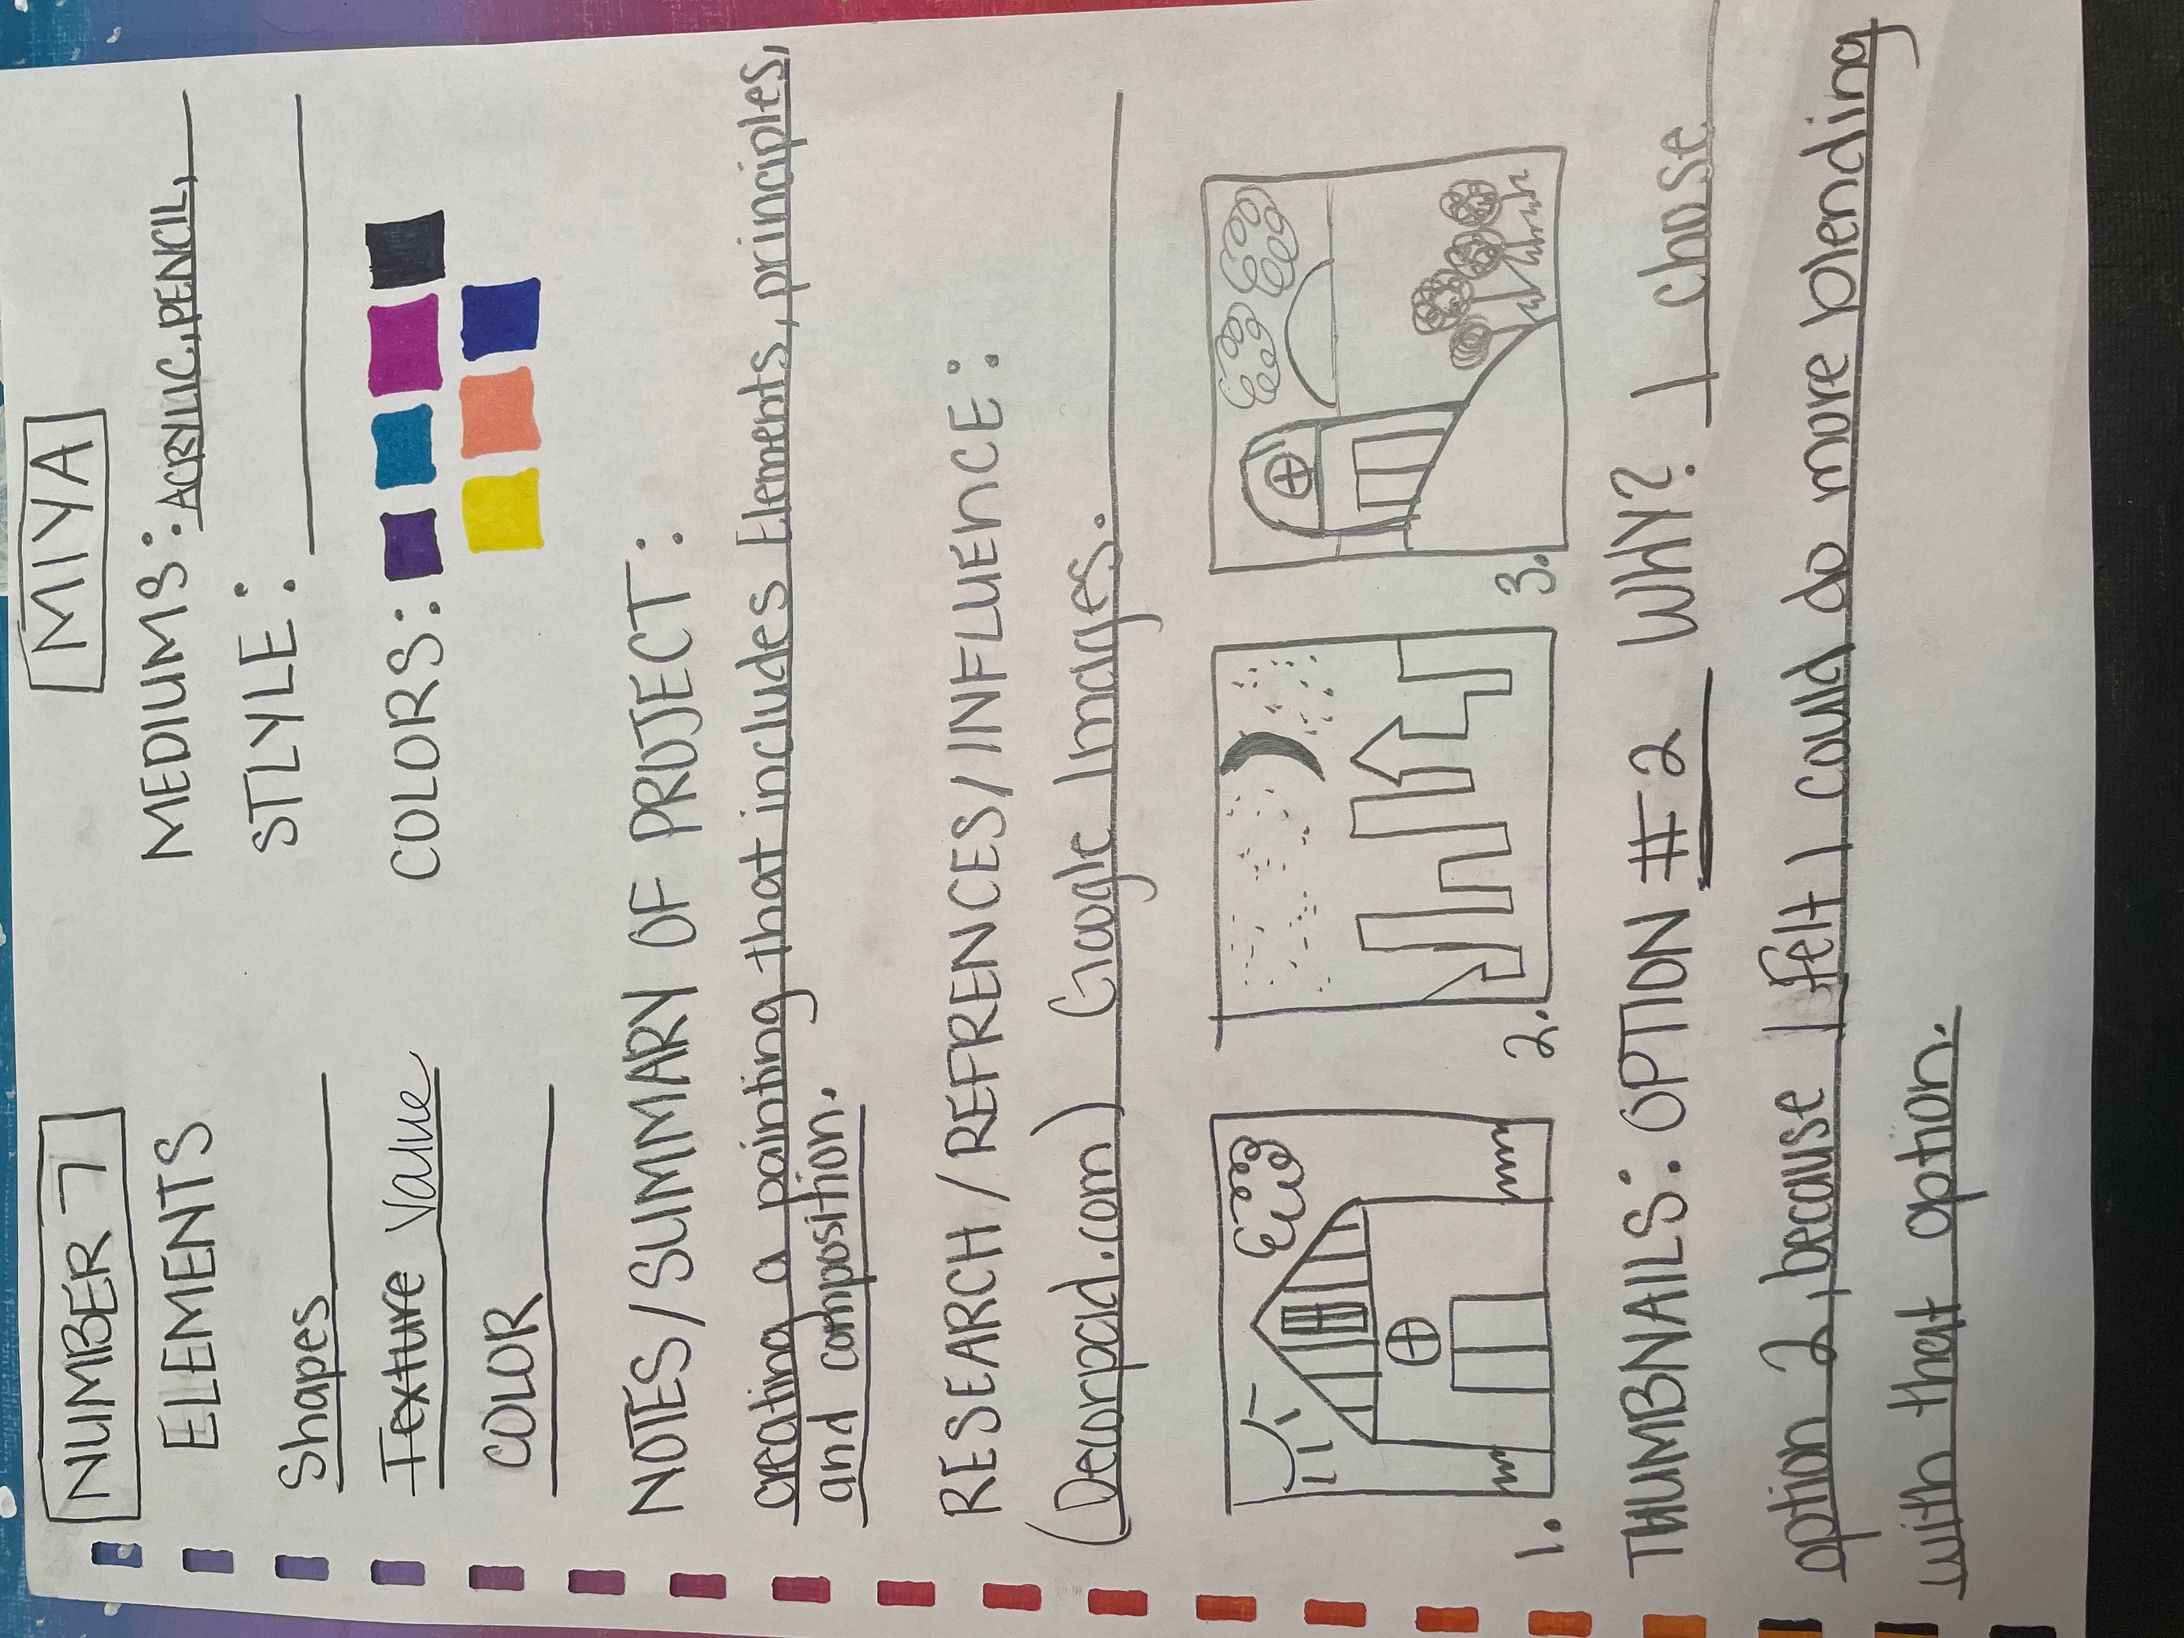 NUMBER 7
MIYA
ELEMENTS
Shapes
Texture Value
COLOR
MEDIUMS: ACRYLIC, PENCIL,
STLYLE:
COLORS:
NOTES/SUMMARY OF PROJECT:
creating a painting that includes Elements, principles,
and composition.
RESEARCH/REFRENCES/INFLUENCE:
(Decorpad.com) Google Images.
1.
2.
3.
THUMBNAILS: OPTION #2 WHY? I chose
option 2, because I felt I could do more blending
with that option.